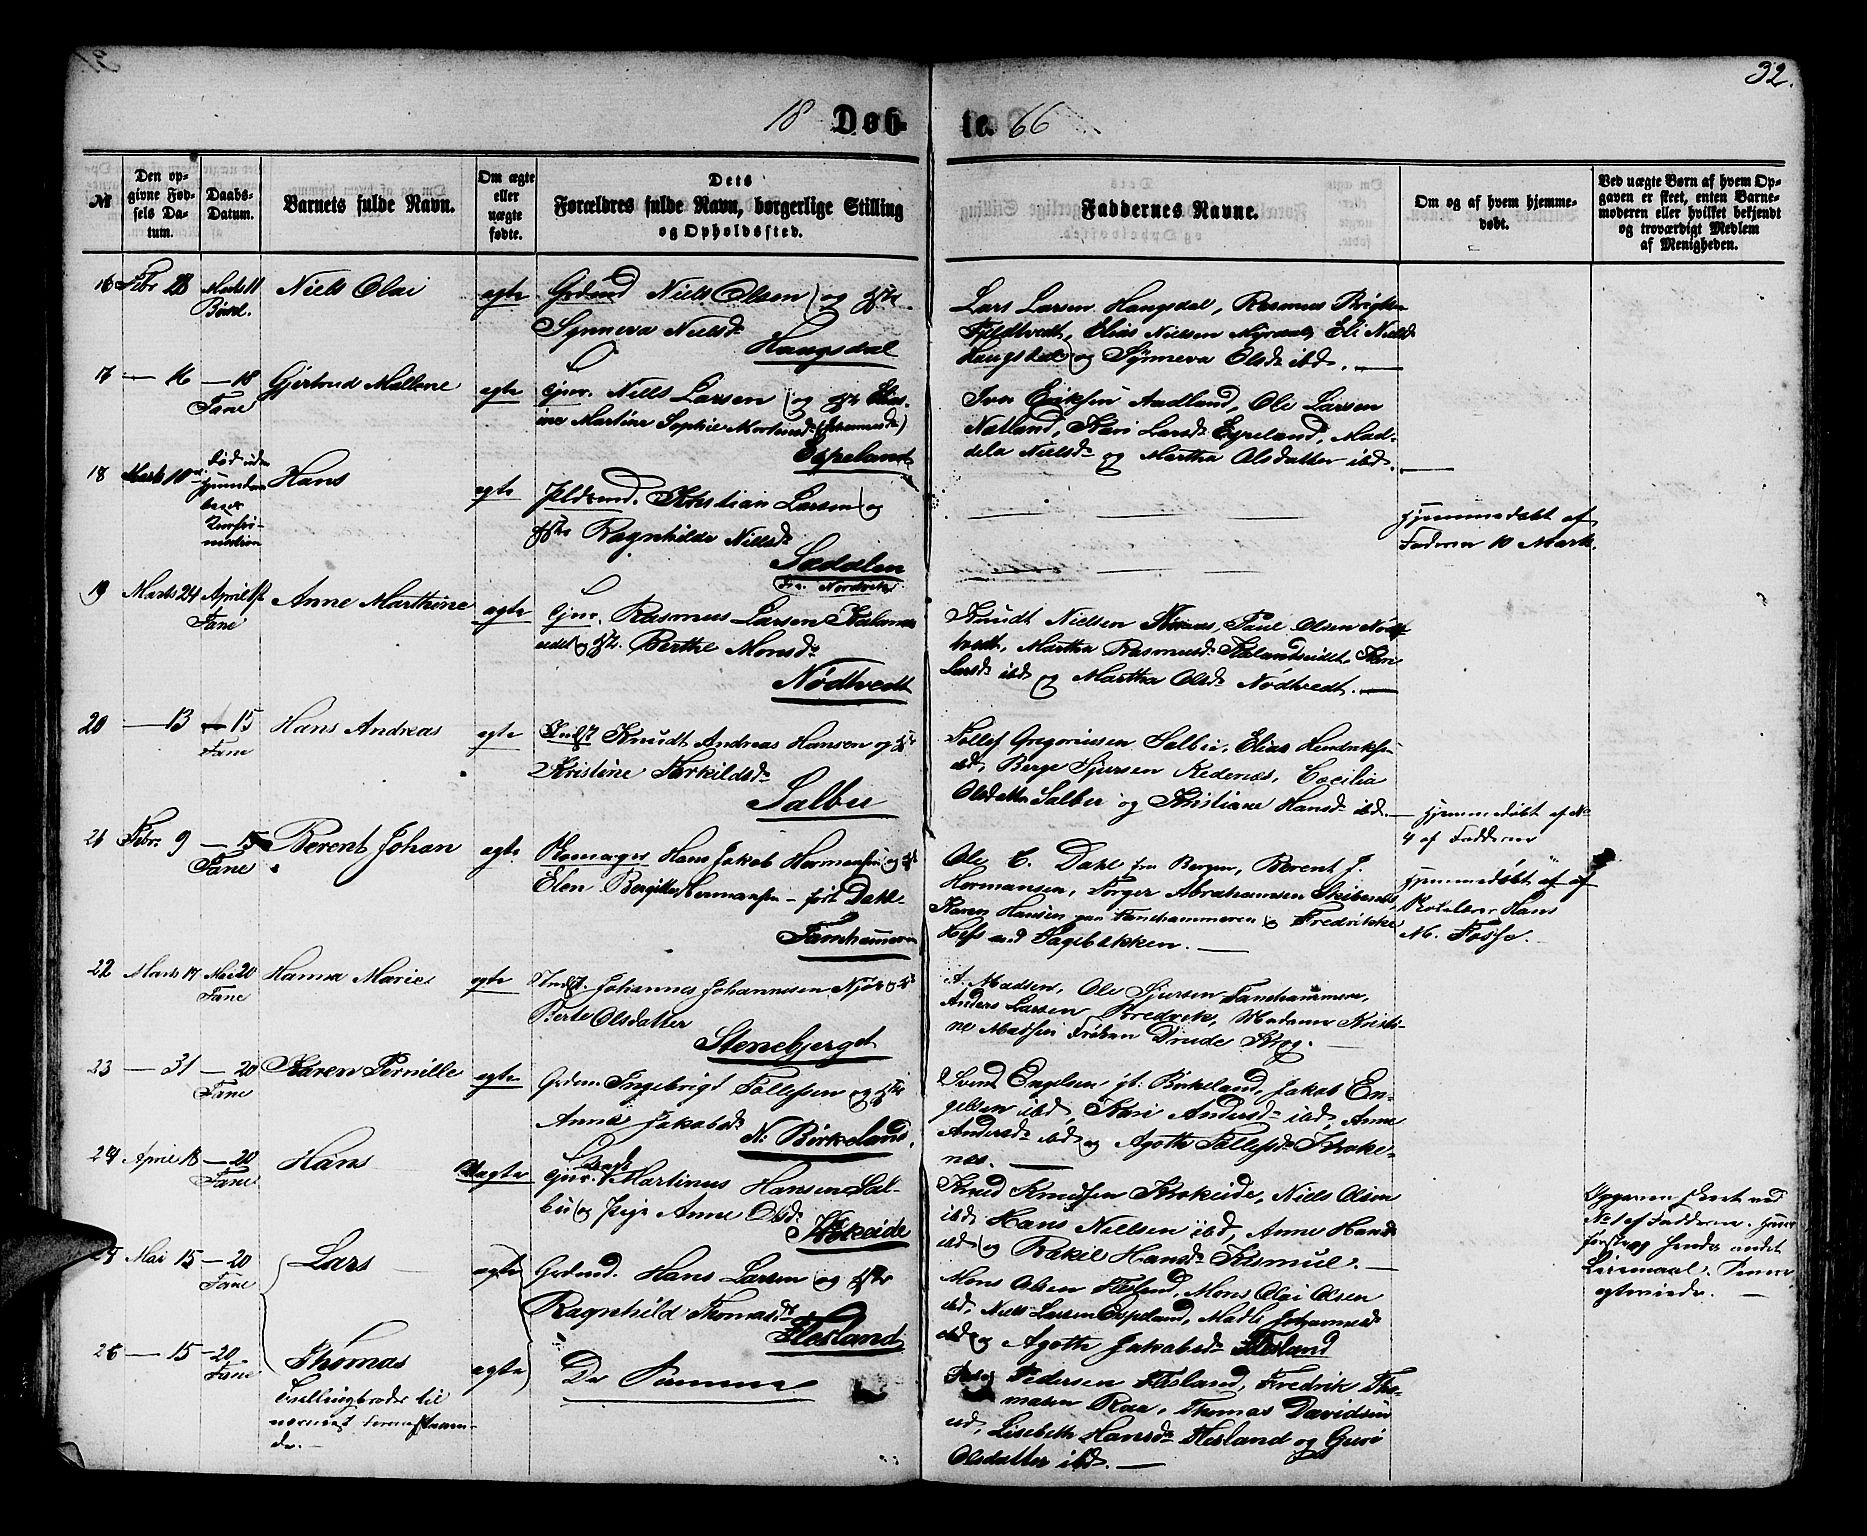 32.
18 Døb-
te. 66
№
Den op-
givne Fød-
sels Da-
tum.
Daabs-
Datum.
Barnets fulde Navn.
Om ægte
eller
uægte
fødte.
Dets
Forældres fulde Navn, borgerlige Stilling
og Opholdssted.
Faddernes Navne.
Om og af hvem hjemme-
døbt.
Ved uægte Børn af hvem Op-
gaven er skeet, enten Barne-
moderen eller hvilket bekjendt
og troværdigt Medlem
af Menigheden.
16 Febr 28 Marts 11 Niels Olai ægte Grdmd Niels Olsen og Hstr
Synneva Nielsdr
Haugsdal
Lars Larsen Haugsdal, Rasmus
Elias Nielsen Myrdal, Eli Nielsdr
Haugsdal og Synneva Olsdr ibd.
17 — 16 — 18 Gjertrud Mallene ægte Gmr. Niels Larsen og Hstr
Fane
ine Martine Sophie Mortensdr
Espeland
Iver Eriksen Aadland, Ole Larsen
Natland, Kari Larsdr Espeland, Mad-
dela Nielsdr og Martha Olsdatter ibd.
18 Marts 10 Død uden Hans ægte Kristian Larsen og
Hstr Ragnhilde Nielsdr
Sædalen
hjemmedøbt af
Faderen 10 Mark.
19 Marts 24 April 1st Anne Marthine ægte Gmr. Rasmus Larsen Kaland-
Fane
eidet og Hstr. Berthe Monsdr
Nødtvedt
Knudt Nielsen Paul Olsen Nødt-
tvedt, Martha Rasmusdr Kalandseidet, Kari
Larsdr ibd og Martha Olsdr Nødtvedt.
20 — 13 — 15 Hans Andreas ægte Knudt Andreas Hansen og Hstr
Fane
Kristine Torkildsdr
Salbu
Tollef Gregoriussen Salbu, Elias Hendriksen
ibd, Berge Sjursen Rednæs, Cæcilia
Olsdatter Salbu og Kristiane Hansdr ibd.
hjemmedøbt af No
4 af Fadderne
21 Febr 9 — 15 Berent Johan ægte Hans Jakob Hermansen og Hstr
Fane
Elen Bergitte Hermansen — født Dahl
Fanehammeren
Ole C. Dahl fra Bergen, Berent J.
Hermansen, Torger Abrahamsen
Karen Hansen paa Fanehammeren og Fredrikke
Hess ved Sagebækken.
hjemmedøbt af
Kirkelærer Hans
M. Fosse.
22 Marts 17 Mai 20 Hanna Marie ægte Indst. Johannes Johannesen Njøs og Hstr
Fane
Berte Olsdatter
Stenebjerget
A. Madsen, Ole Sjursen Fanehammeren,
Anders Larsen Madame Kristi-
ne Madsen Frøken Drude Krog.
23 — 31 — 20 Karen Pernille ægte Grdm. Ingebrigt Tollefsen og Hstr
Fane
Anna Jakobsdr
N: Birkeland.
Svend Engelsen, Birkeland, Jakob En-
gelsen ibd, Kari Andersdr ibd, Anne
Andersdr ibd og Agothe Tollefsdr Kroke-
næs.
24 April 18 — 20 Hans Uægte Martinus Hansen Sal-
Fane
bu og Pige Anne Olsdr
Krokeide
Knud Knudsen Krokeide, Niels Olsen
ibd, Hans Nielsen ibd, Anne Hansdr
ibd og Rakel Hansdr Kosmul.
Opgaven skeet ved
No 1 af Fadderne.
første og hendes andet
Leiermaal.
25 Mai 15 — 20 Lars ægte Grdmd. Hans Larsen og Hstr
Fane
Ragnhild Thomasdr
Flesland
Mons Olsen Flesland, Mons Olai Olsen
ibd, Niels Larsen Espeland, Madli Johannesdr
ibd og Agothe Jakobsdr Flesland
26 — 15 — 20 Thomas ægte De Samme
Fane
Tvillingbroder til
nærmest foranstaaen-
de.
Pedersen Flesland, Fredrik Tho-
masen Raa, Thomas Davidsen
ibd, Lisebeth Hansdr Flesland og Guro
Olsdatter ibd.